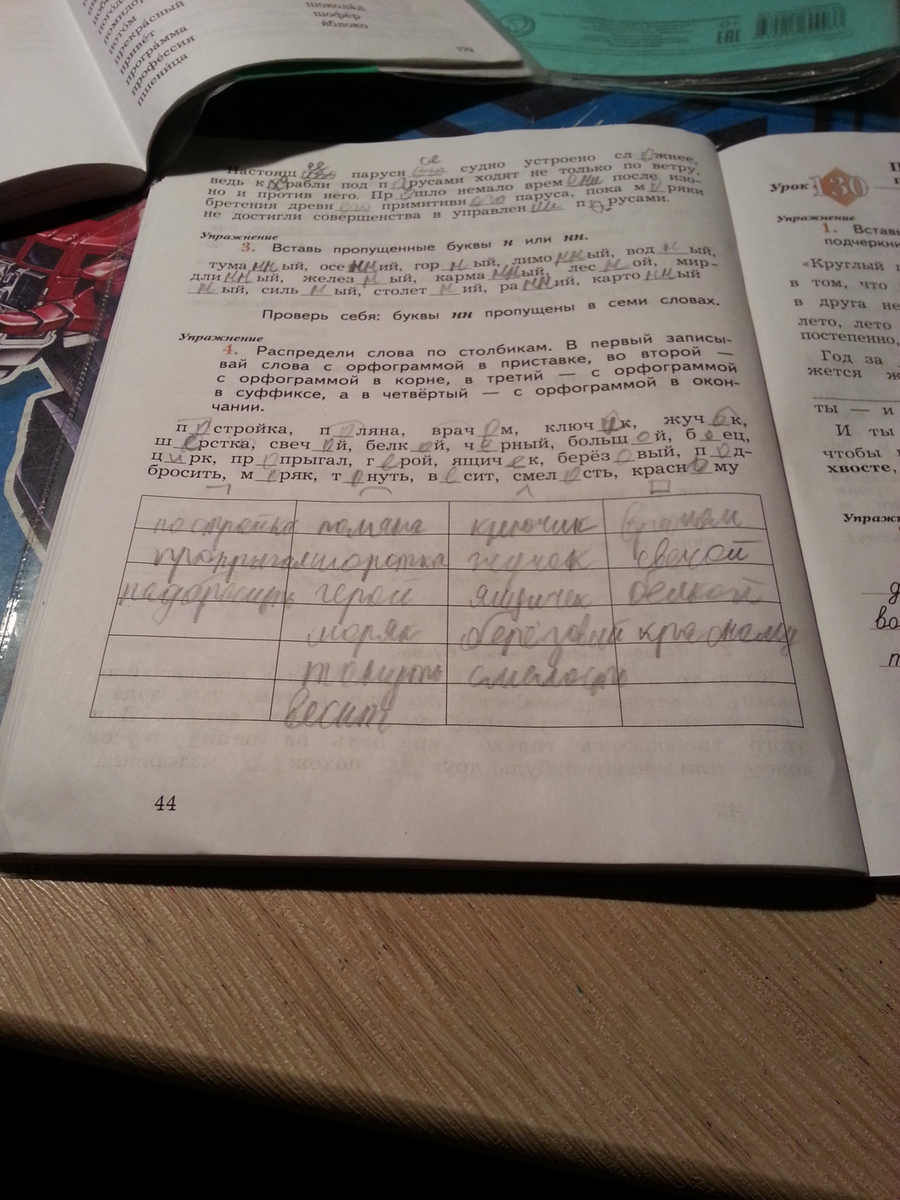 шоколад
шофёр
яблоко
прекрасный
привет
программа
профессия
пшеница
199
EAC
0+
Настоящ ее парусн ое судно устроено сл ожнее,
ведь к орабли под п арусами ходят не только по ветру,
но и против него. Пр ошло немало врем ени после изо-
бретения древн его примитивн ого паруса, пока м оряки
не достигли совершенства в управлен ии п арусами.
Упражнение
3. Вставь пропущенные буквы н или нн.
тума нн ый, осе нн ий, гор н ый, лимо нн ый, вод н ый,
дли нн ый, желез н ый, карма нн ый, лес н ой, мир-
н ый, силь н ый, столет н ий, ра нн ий, карто нн ый
Проверь себя: буквы нн пропущены в семи словах.
Упражнение
4. Распредели слова по столбикам. В первый записы-
вай слова с орфограммой в приставке, во второй —
с орфограммой в корне, в третий — с орфограммой
в суффиксе, а в четвёртый — с орфограммой в окон-
чании.
п о стройка, п о ляна, врач о м, ключ и к, жуч о к,
ш ё рстка, свеч о й, белк о й, ч ё рный, больш о й, б о ец,
ц и рк, пр о прыгал, г е рой, ящич е к, берёз о вый, п о д-
бросить, м о ряк, т о нуть, в е сит, смел о сть, красн о му
постройка поляна ключик врачом
жучок свечой
герой ящичек белкой
моряк берёзовый красному
тонуть смелость
весит
44
Урок 130
Упражнение
1. Встав
подчеркн
«Круглый
в том, что
в друга не
лето, лето
постепенно,
Год за
жется ж
ты — и
И ты
чтобы
хвосте,
Упражн